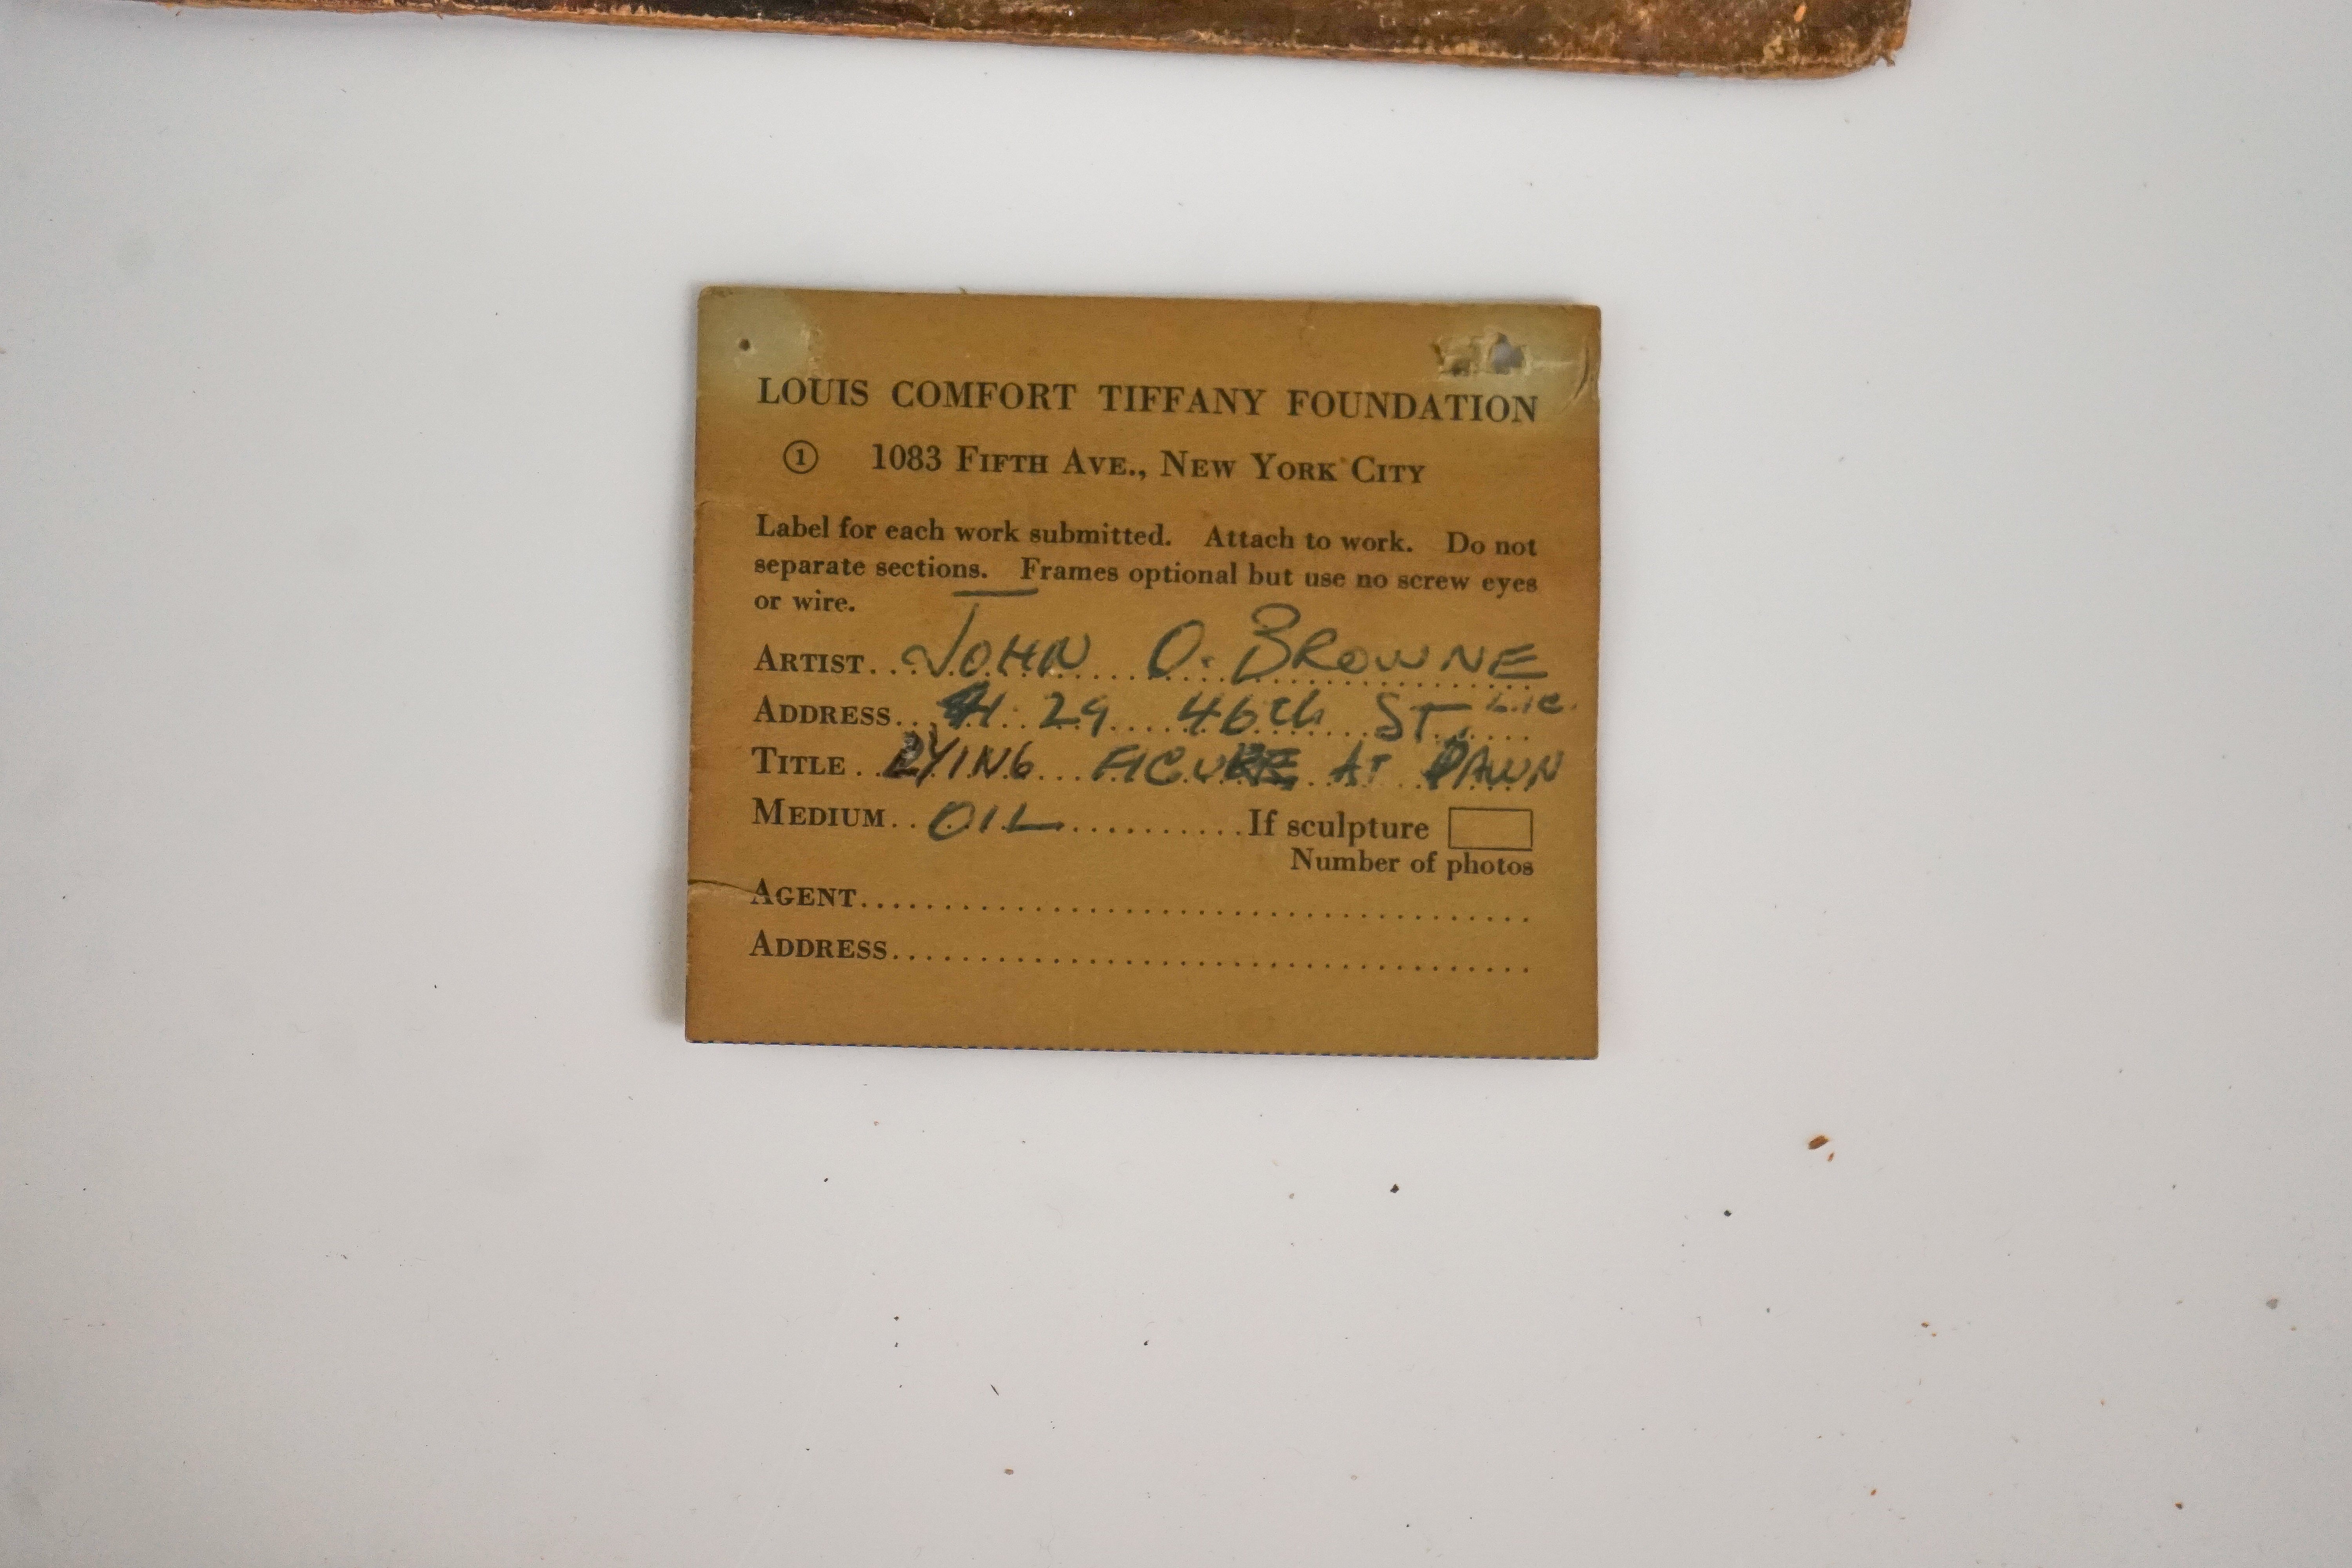 LOUIS COMFORT TIFFANY FOUNDATION
① 1083 FIFTH AVE., NEW YORK CITY
Label for each work submitted. Attach to work. Do not
separate sections. Frames optional but use no screw eyes
or wire.
ARTIST JOHN O. BROWNE
ADDRESS 29 46th ST, L.I.C.
TITLE DYING FIGURE AT DAWN
MEDIUM OIL If sculpture
Number of photos
AGENT
ADDRESS